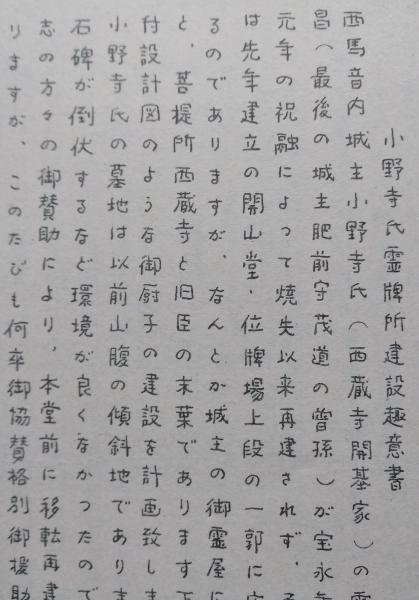 小野寺氏霊牌所建設趣意書
西馬音内城主小野寺氏（西蔵寺開基家）の
昌（最後の城主肥前守茂道の曽孫）が宝永
元年の祝融によって焼失以来再建されず、
は先年建立の開山堂・位牌場上段の一郭に
るのでありますが、なんとか城主の御霊屋に
と、菩提所西蔵寺と旧臣の末葉であります
付設計図のような御厨子の建設を計画致しま
小野寺氏の墓地は以前山腹の傾斜地でありま
石碑が倒伏するなど環境が良くなかったので
志の方々の御賛助により、本堂前に移転再建
りますが、このたびも何卒御協賛格別御援助